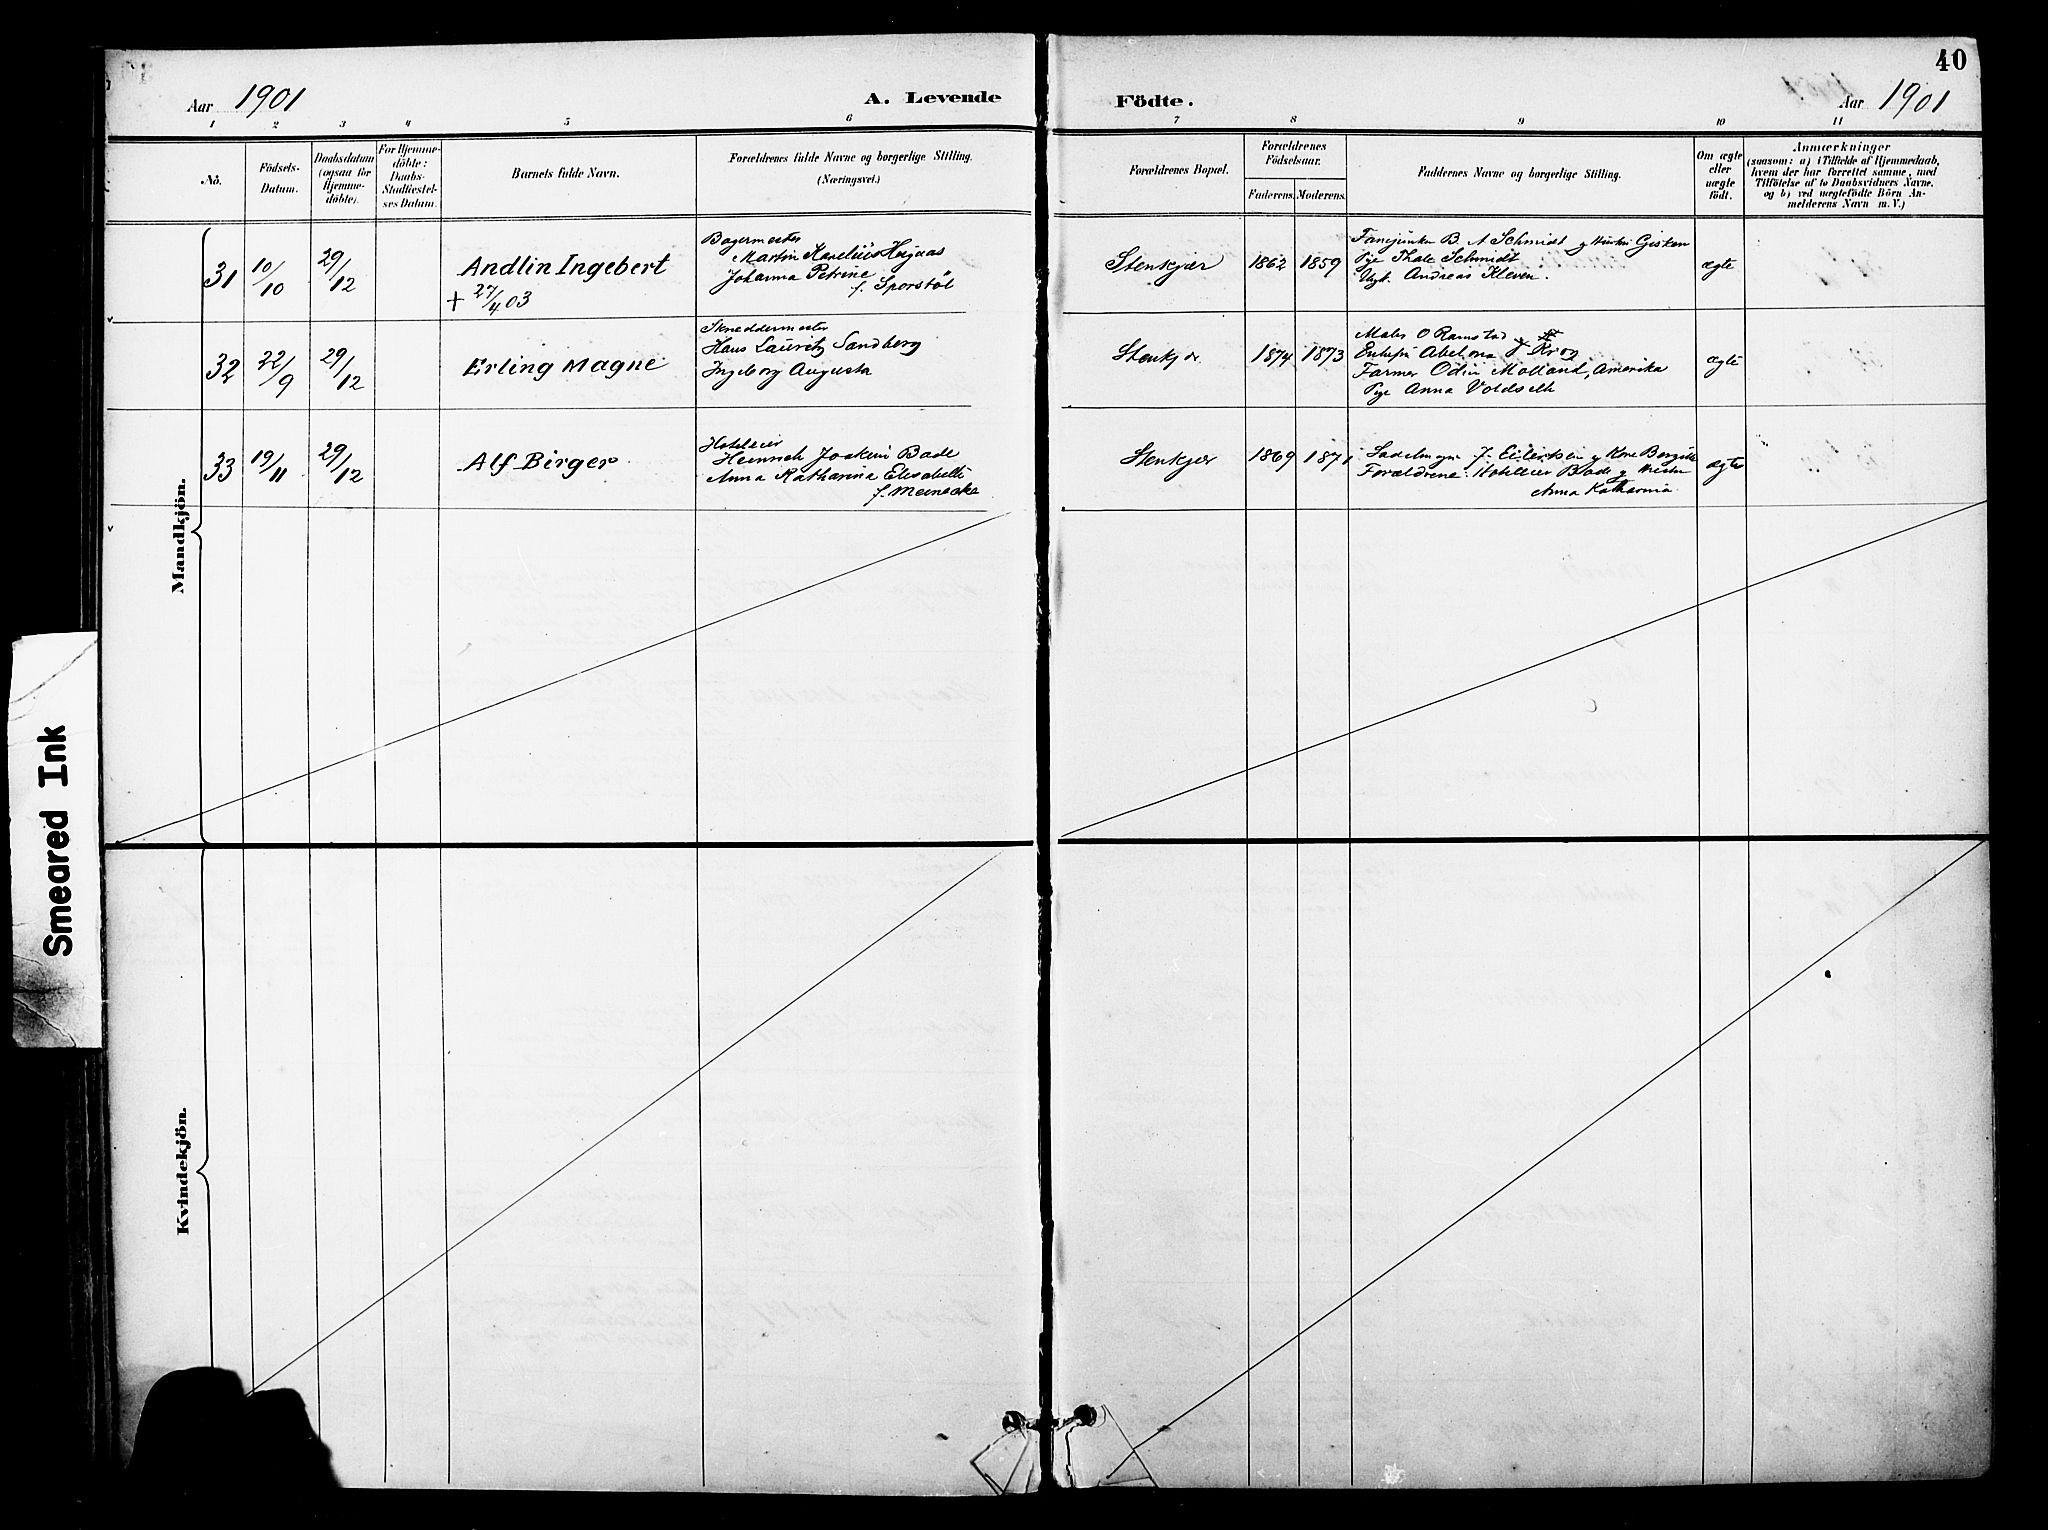 40
Aar 1901
A. Levende
Födte.
Aar 1901
1 2 3 4 5 6 7 8 9 10 11
No.
Födsels-
Datum.
Daabsdatum
(ogsaa för
Hjemme-
döbte).
For Hjemme-
döbte:
Daabs-
Stadfæstel-
ses Datum.
Barnets fulde Navn.
Forældrenes fulde Navne og borgerlige Stilling.
(Næringsvei.)
Forældrenes Bopæl.
Forældrenes
Födselsaar.
Faderens. Moderens.
Faddernes Navne og borgerlige Stilling.
Om ægte
eller
uægte
födt.
Anmærkninger
(saasom: a) i Tilfælde af Hjemmedaab,
hvem der har forrettet samme, med
Tilföielse af to Daabsvidners Navne,
og b) ved uægtefödte Börn An-
melderens Navn m. V.)
Mandkjön.
31
10/10
29/12
Andlin Ingebert
+ 27/4 03
Bagermester
Martin
Johanna Petrine
f. Sporstöl
Stenkjær
1862 1859
B. A Schmidt y Hustru Gisken
Pige Thale Schmidt
Ungk. Andreas Kleven.
ægte
32
22/9
29/12
Erling Magne
Skreddermester
Hans Lauritz Sandberg
Ingeborg Augusta
Stenkjær
1874 1873
Maler O Ramstad
Abelona Krog
Farmer Odin Molland, Amerika
Pige Anna
ægte
33
19/11
29/12
Alf Birger
Hotelleier
Heinrich Joakim Bade
Anna Katharina Elisabeth
f. Meinecke
Stenkjær
1869 1871
J. Eilertsen y Kone
Forældrene: Hotelleier Bade y Hustru
Anna Katharina
ægte
Kvindekjön.
Smeared Ink